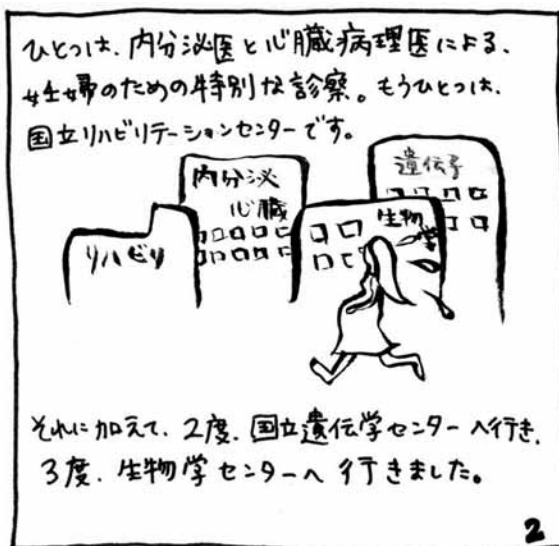 ひとつは、内分泌医と心臓病理医による、
妊婦のための特別な診察。もうひとつは、
国立リハビリテーションセンターです。
リハビリ
内分泌
心臓
生物学
遺伝子
それに加えて、2度、国立遺伝学センターへ行き、
3度、生物学センターへ行きました。
2